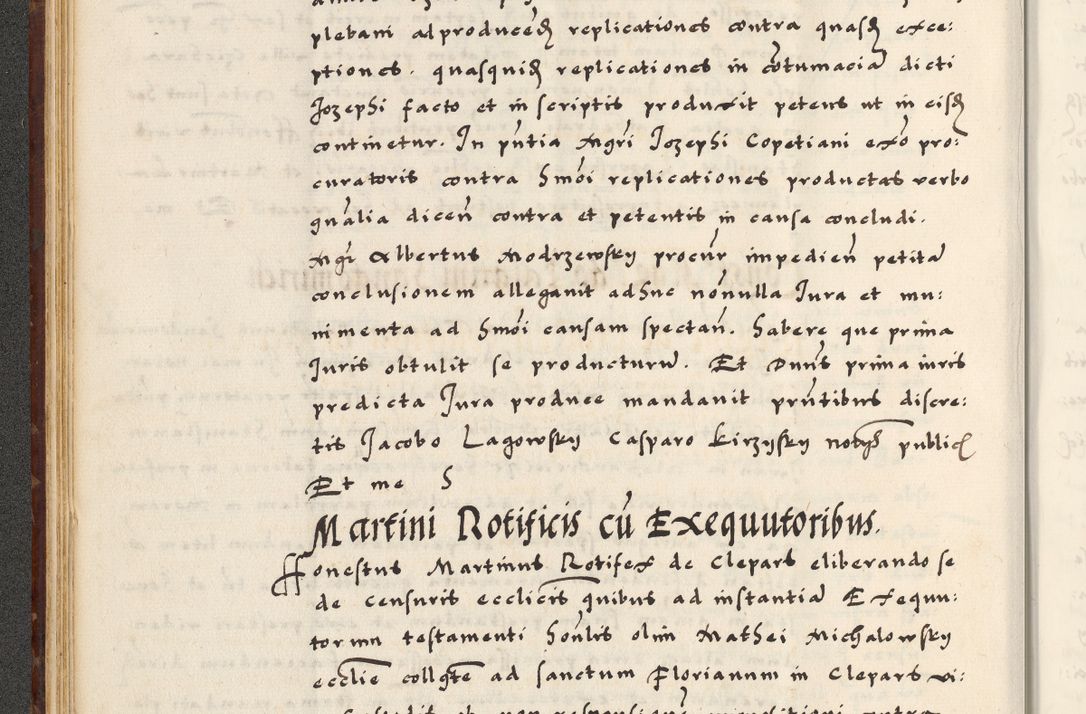 plebani al producendas replicationes contra quasdam exce:
ptiones. quasquidem replicationes in cōtumaciā dicti
Jozephi facto et in scriptis produxit petens ut in eisdem
continetur. In pñtia Mgri Jozephi Copetiani exō pro:
curatoris contra hmōi replicationes productas verbo
gnālia dicen̄ contra et petentis in causa concludi.
Mgr̄ Albertus Modrzewsky procūr impedien̄ petitā
conclusionem allegavit adhuc nōnulla Jura et mu:
nimenta ad hmōi causam spectan̄. habere que prima
Juris obtulit se producturū. Et Dnus prima iuris
predicta Jura produce mandavit pn̄tibus discre:
tis Jacobo Lagowsky Casparo Kirzysky notīs public
Et me S
Martini Rotificis cū Exequutoribus.
Honestus Martinus Rotifex de Clepars eliberando se
de censuris ecclicis quibus ad instantiā Exequu:
torum testamenti honlis olim Mathei Michalowsky
ecclie collgte ad sanctum Florianum in Clepars vi: